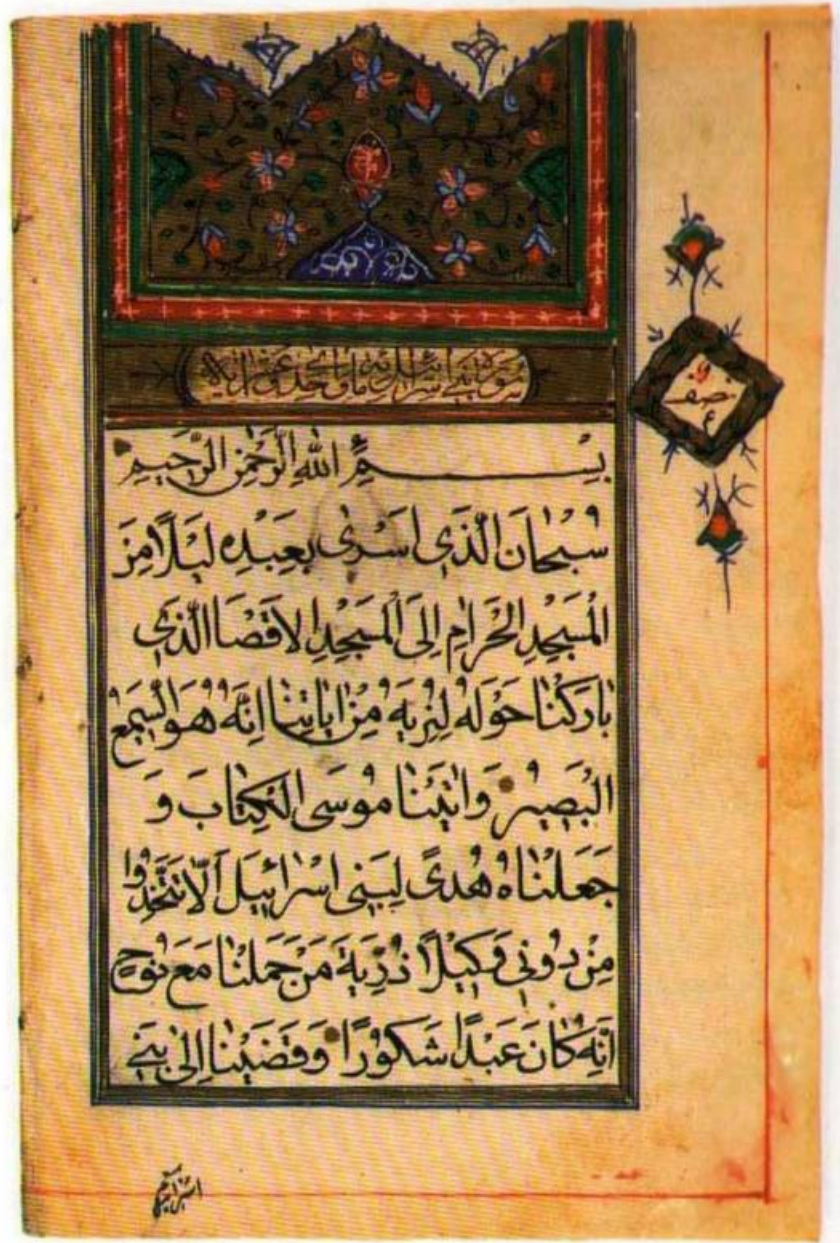 سورة بني اسرائيل مائة واحدى عشر اية
نصف
بِسْمِ اللّٰهِ الرَّحْمٰنِ الرَّحيمِ
سُبْحٰانَ الَّذَي اَسْرٰى بِعَبْدِهِ لَيْلًا مِنَ
الْمَسْجِدِ الْحَرٰامِ اِلَى الْمَسْجِدِ الْاَقْصَا الَّذَي
بٰارَكْنٰا حَوْلَهُ لِنُرِيَهُ مِنْ اٰيٰاتِنٰا اِنَّهُ هُوَ السَّميعُ
الْبَصيرُ وَاٰتَيْنٰا مُوسَى الْكِتٰابَ وَ
جَعَلْنٰاهُ هُدًى لِبَنى اِسْرٰائيلَ اَلّٰا تَتَّخِذُوا
مِنْ دُوني وَكيلًا ذُرِّيَةَ مَنْ حَمَلْنٰا مَعَ نُوحٍ
اِنَّهُ كٰانَ عَبْدًا شَكُورًا وَقَضَيْنٰا اِلٰى بَنى
اسرائيل